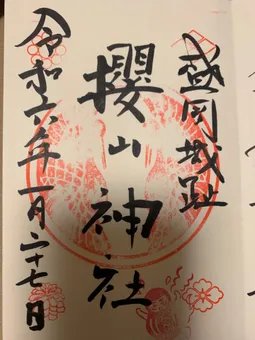 盛岡城趾
櫻山神社
令和六年一月二十七日